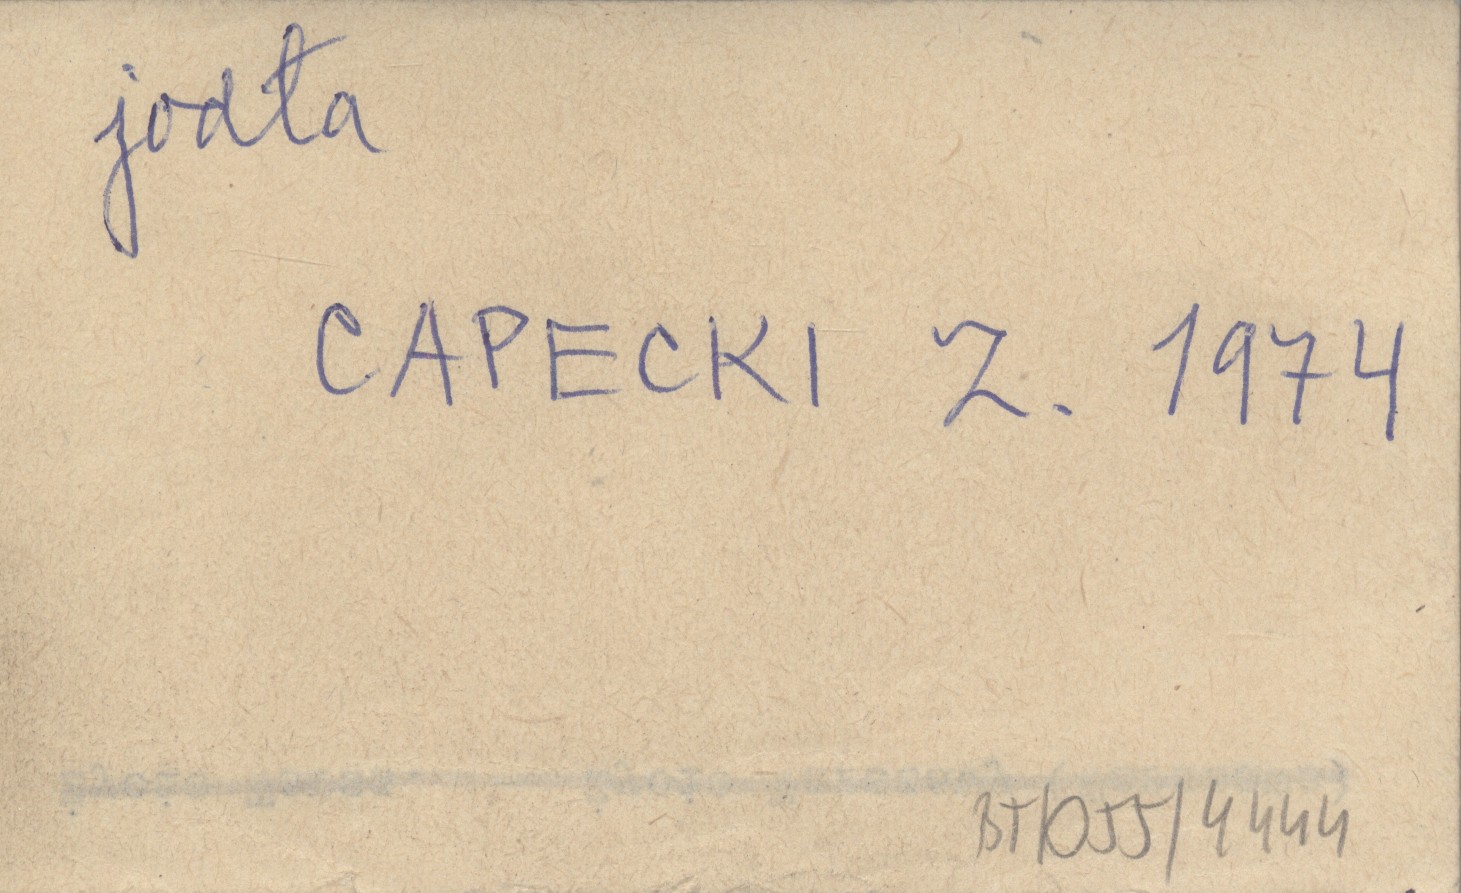 jodła
CAPECKI Z. 1974
BT/055/4444